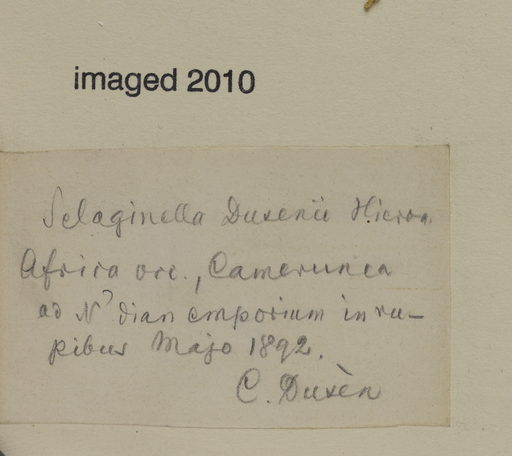 imaged 2010
Selaginella Dusenii Hieron
Africa occ., Camerunea
ad N'dian emporium in ru-
pibus Majo 1892.
C. Dusèn